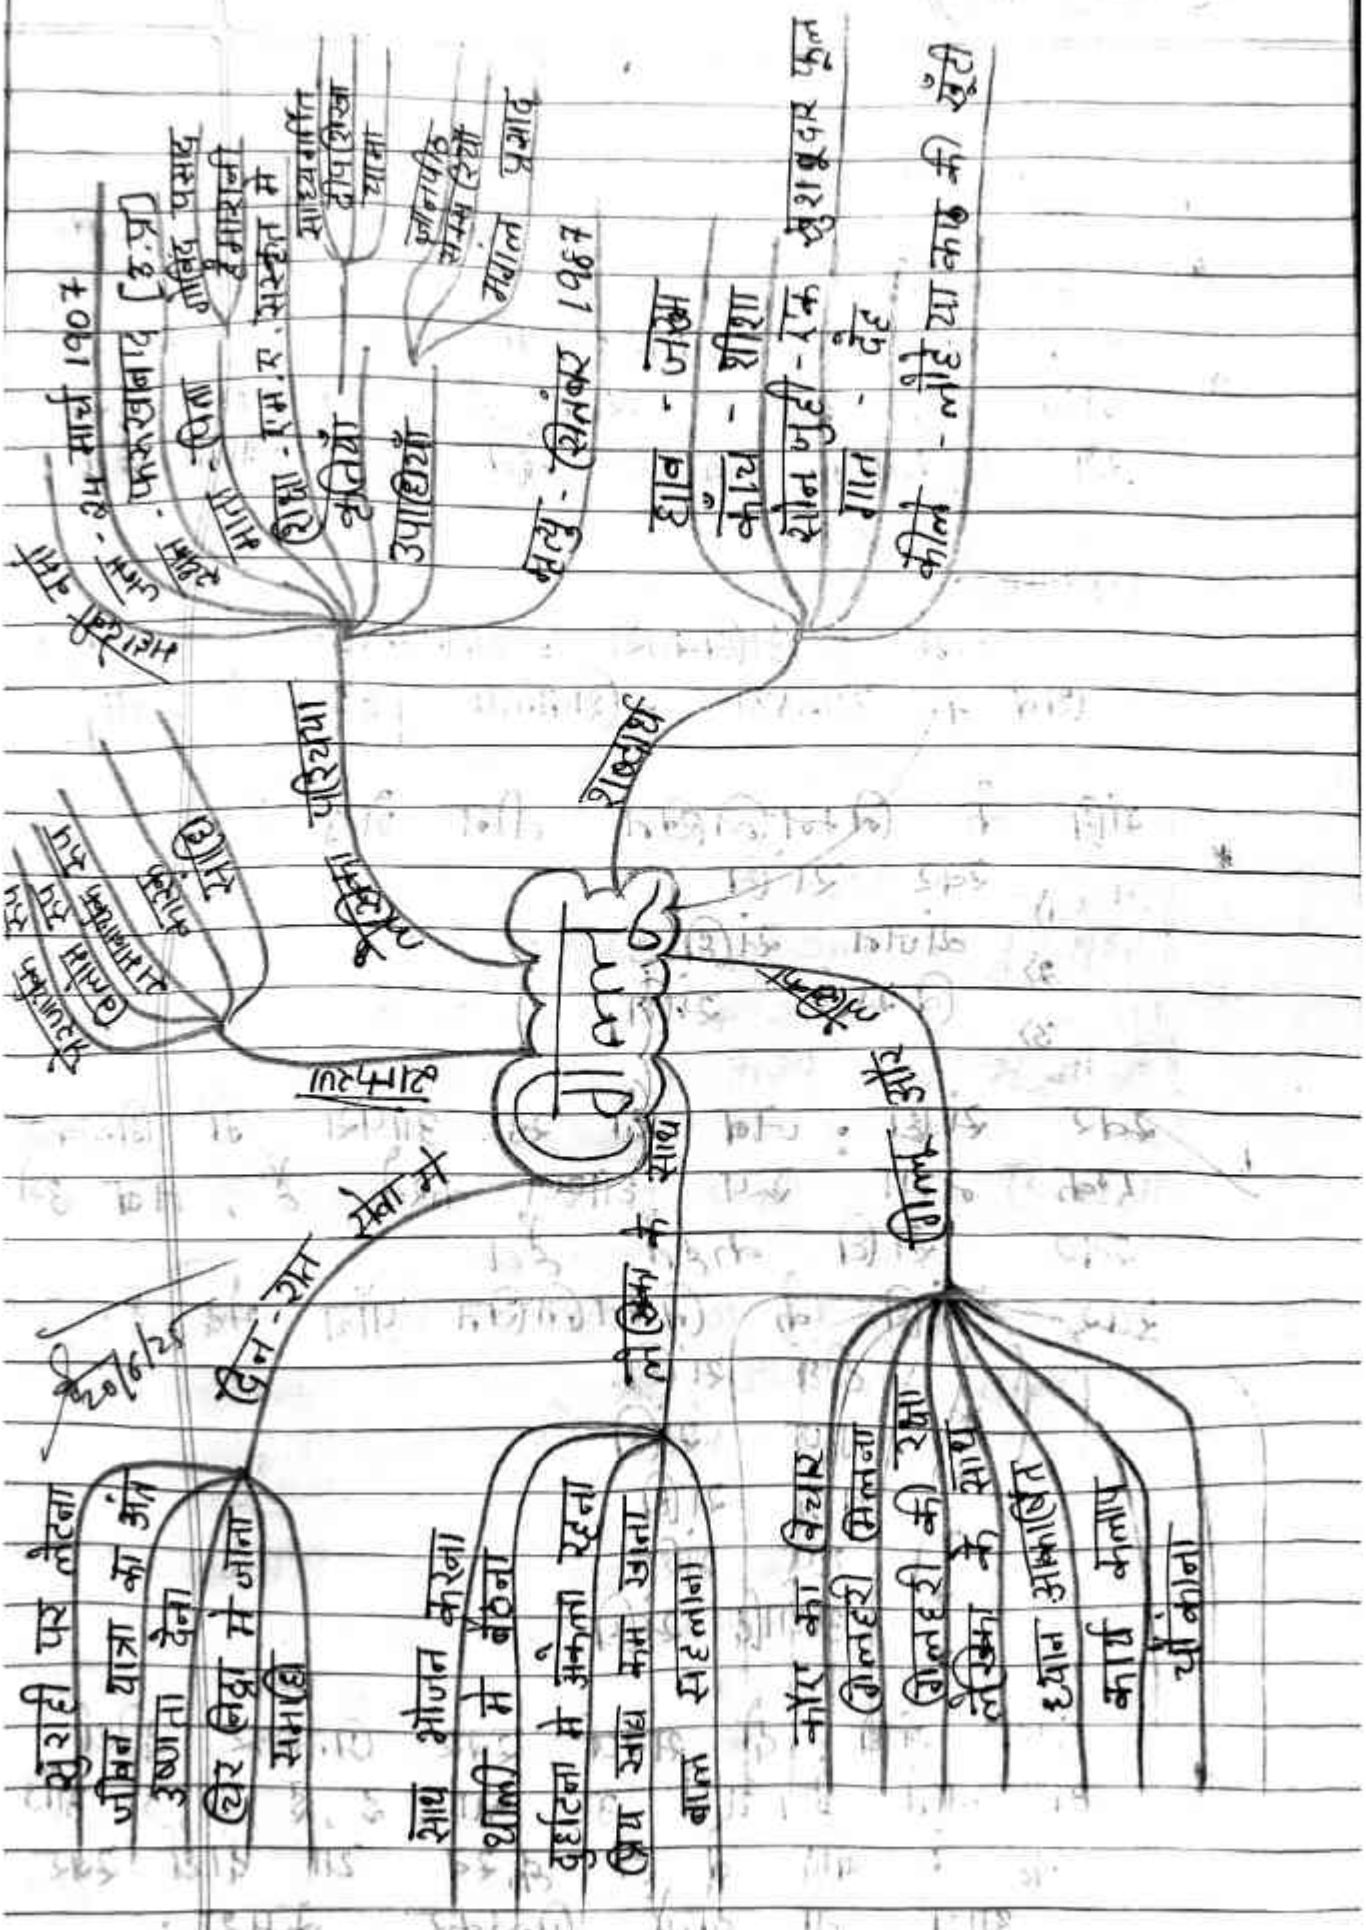 गिल्लू
लेखिका परिचय
महादेवी वर्मा
जन्म - 24 मार्च 1907
स्थान - फरूखबाद [उ.प्र]
माता - पिता
गोविंद प्रसाद
हेमारानी
शिक्षा - एम.ए. संस्कृत मे
कृतियाँ
सांध्यगीत
दीपशिखा
यामा
उपाधियाँ
ज्ञानपीठ
मंगल प्रसाद
मृत्यु - सितंबर 1987
शब्दार्थ
घाव - जख्म
काँच - शीशा
सोनजुही - एक खुशबूदार फूल
गात - देह
कील - लोहे या काठ की खूँटी
व्याकरण
प्रेरणार्थक रूप
विलोम रूप
संधि
लेखिका और गिल्लू
कौए का विचार
गिलहरी मिलना
गिलहरी की रक्षा
लेखिका के साथ
ध्यान आकर्षित
कार्य कलाप
चौंकाना
लेखिका के साथ
साथ भोजन करना
थाली मे बैठना
दुर्घटना मे अकेला रहना
प्रिय खाद्य कम खाना
बाल सहलाना
दिन - रात सेवा मे
सुराही पर लेटना
जीवन यात्रा का अंत
उष्णता देना
चिर निद्रा मे जाना
समाधि
20/6/25